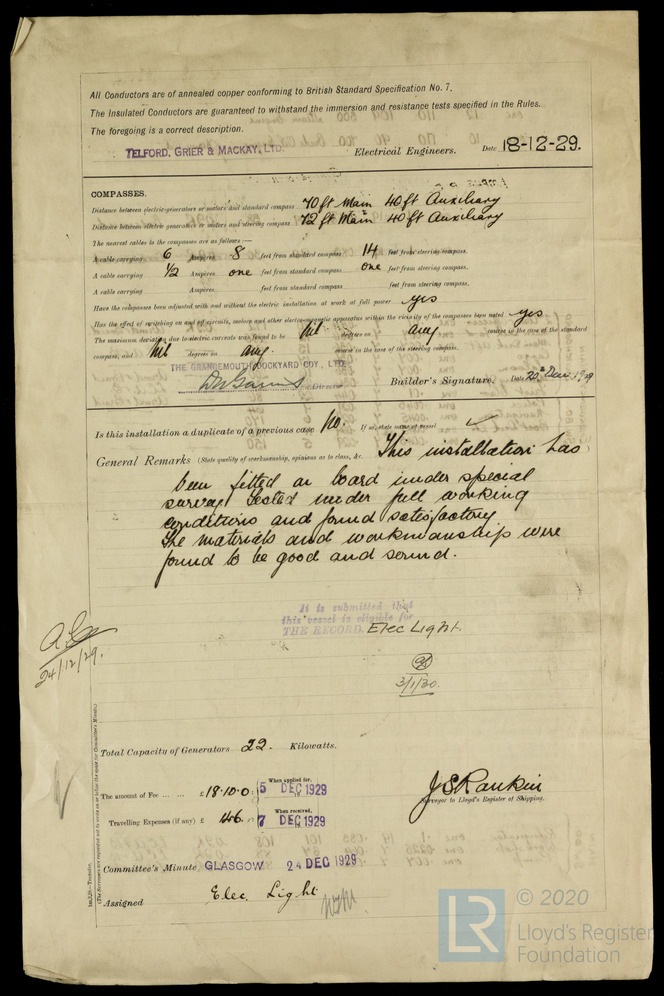 All Conductors are of annealed copper conforming to British Standard Specification No. 7.
The Insulated Conductors are guaranteed to withstand the immersion and resistance tests specified in the Rules.
The foregoing is a correct description.
TELFORD, GRIER & MACKAY, LTD. Electrical Engineers. Date 18-12-29.
COMPASSES.
Distance between electric generators or motors and standard compass 70 ft Main 40 ft Auxiliary
Distance between electric generators or motors and steering compass 72 ft Main 40 ft Auxiliary
The nearest cables to the compasses are as follows:—
A cable carrying 6 Amperes 8 feet from standard compass 14 feet from steering compass.
A cable carrying 1/2 Amperes one feet from standard compass one feet from steering compass.
A cable carrying Amperes feet from standard compass feet from steering compass.
Have the compasses been adjusted with and without the electric installation at work at full power yes
Has the effect of switching on and off circuits, motors and other electro-magnetic apparatus within the vicinity of the compasses been noted yes
The maximum deviation due to electric currents was found to be Nil degrees on any course in the case of the standard
compass, and Nil degrees on any course in the case of the steering compass.
THE GRANGEMOUTH DOCKYARD COY., LTD.
Director Builder's Signature. Date 20th Dec. 1929
Is this installation a duplicate of a previous case No. If so, state name of vessel
General Remarks (State quality of workmanship, opinions as to class, &c. This installation has
been fitted on board under special
survey, tested under full working
conditions and found satisfactory.
The materials and workmanship were
found to be good and sound.
It is submitted that
this vessel is eligible for
THE RECORD. Elec Light.
24/12/29.
3/1/30.
Total Capacity of Generators 22. Kilowatts.
The amount of Fee ... ... £ 18.10.0 When applied for, 5 DEC 1929
J S Rankin
Surveyor to Lloyd's Register of Shipping.
Travelling Expenses (if any) £ When received, 7 DEC 1929
Committee's Minute GLASGOW 24 DEC 1929
Assigned Elec. Light
(The Surveyors are requested not to write on or below the space for Committee's Minute.)
LR
© 2020
Lloyd's Register
Foundation